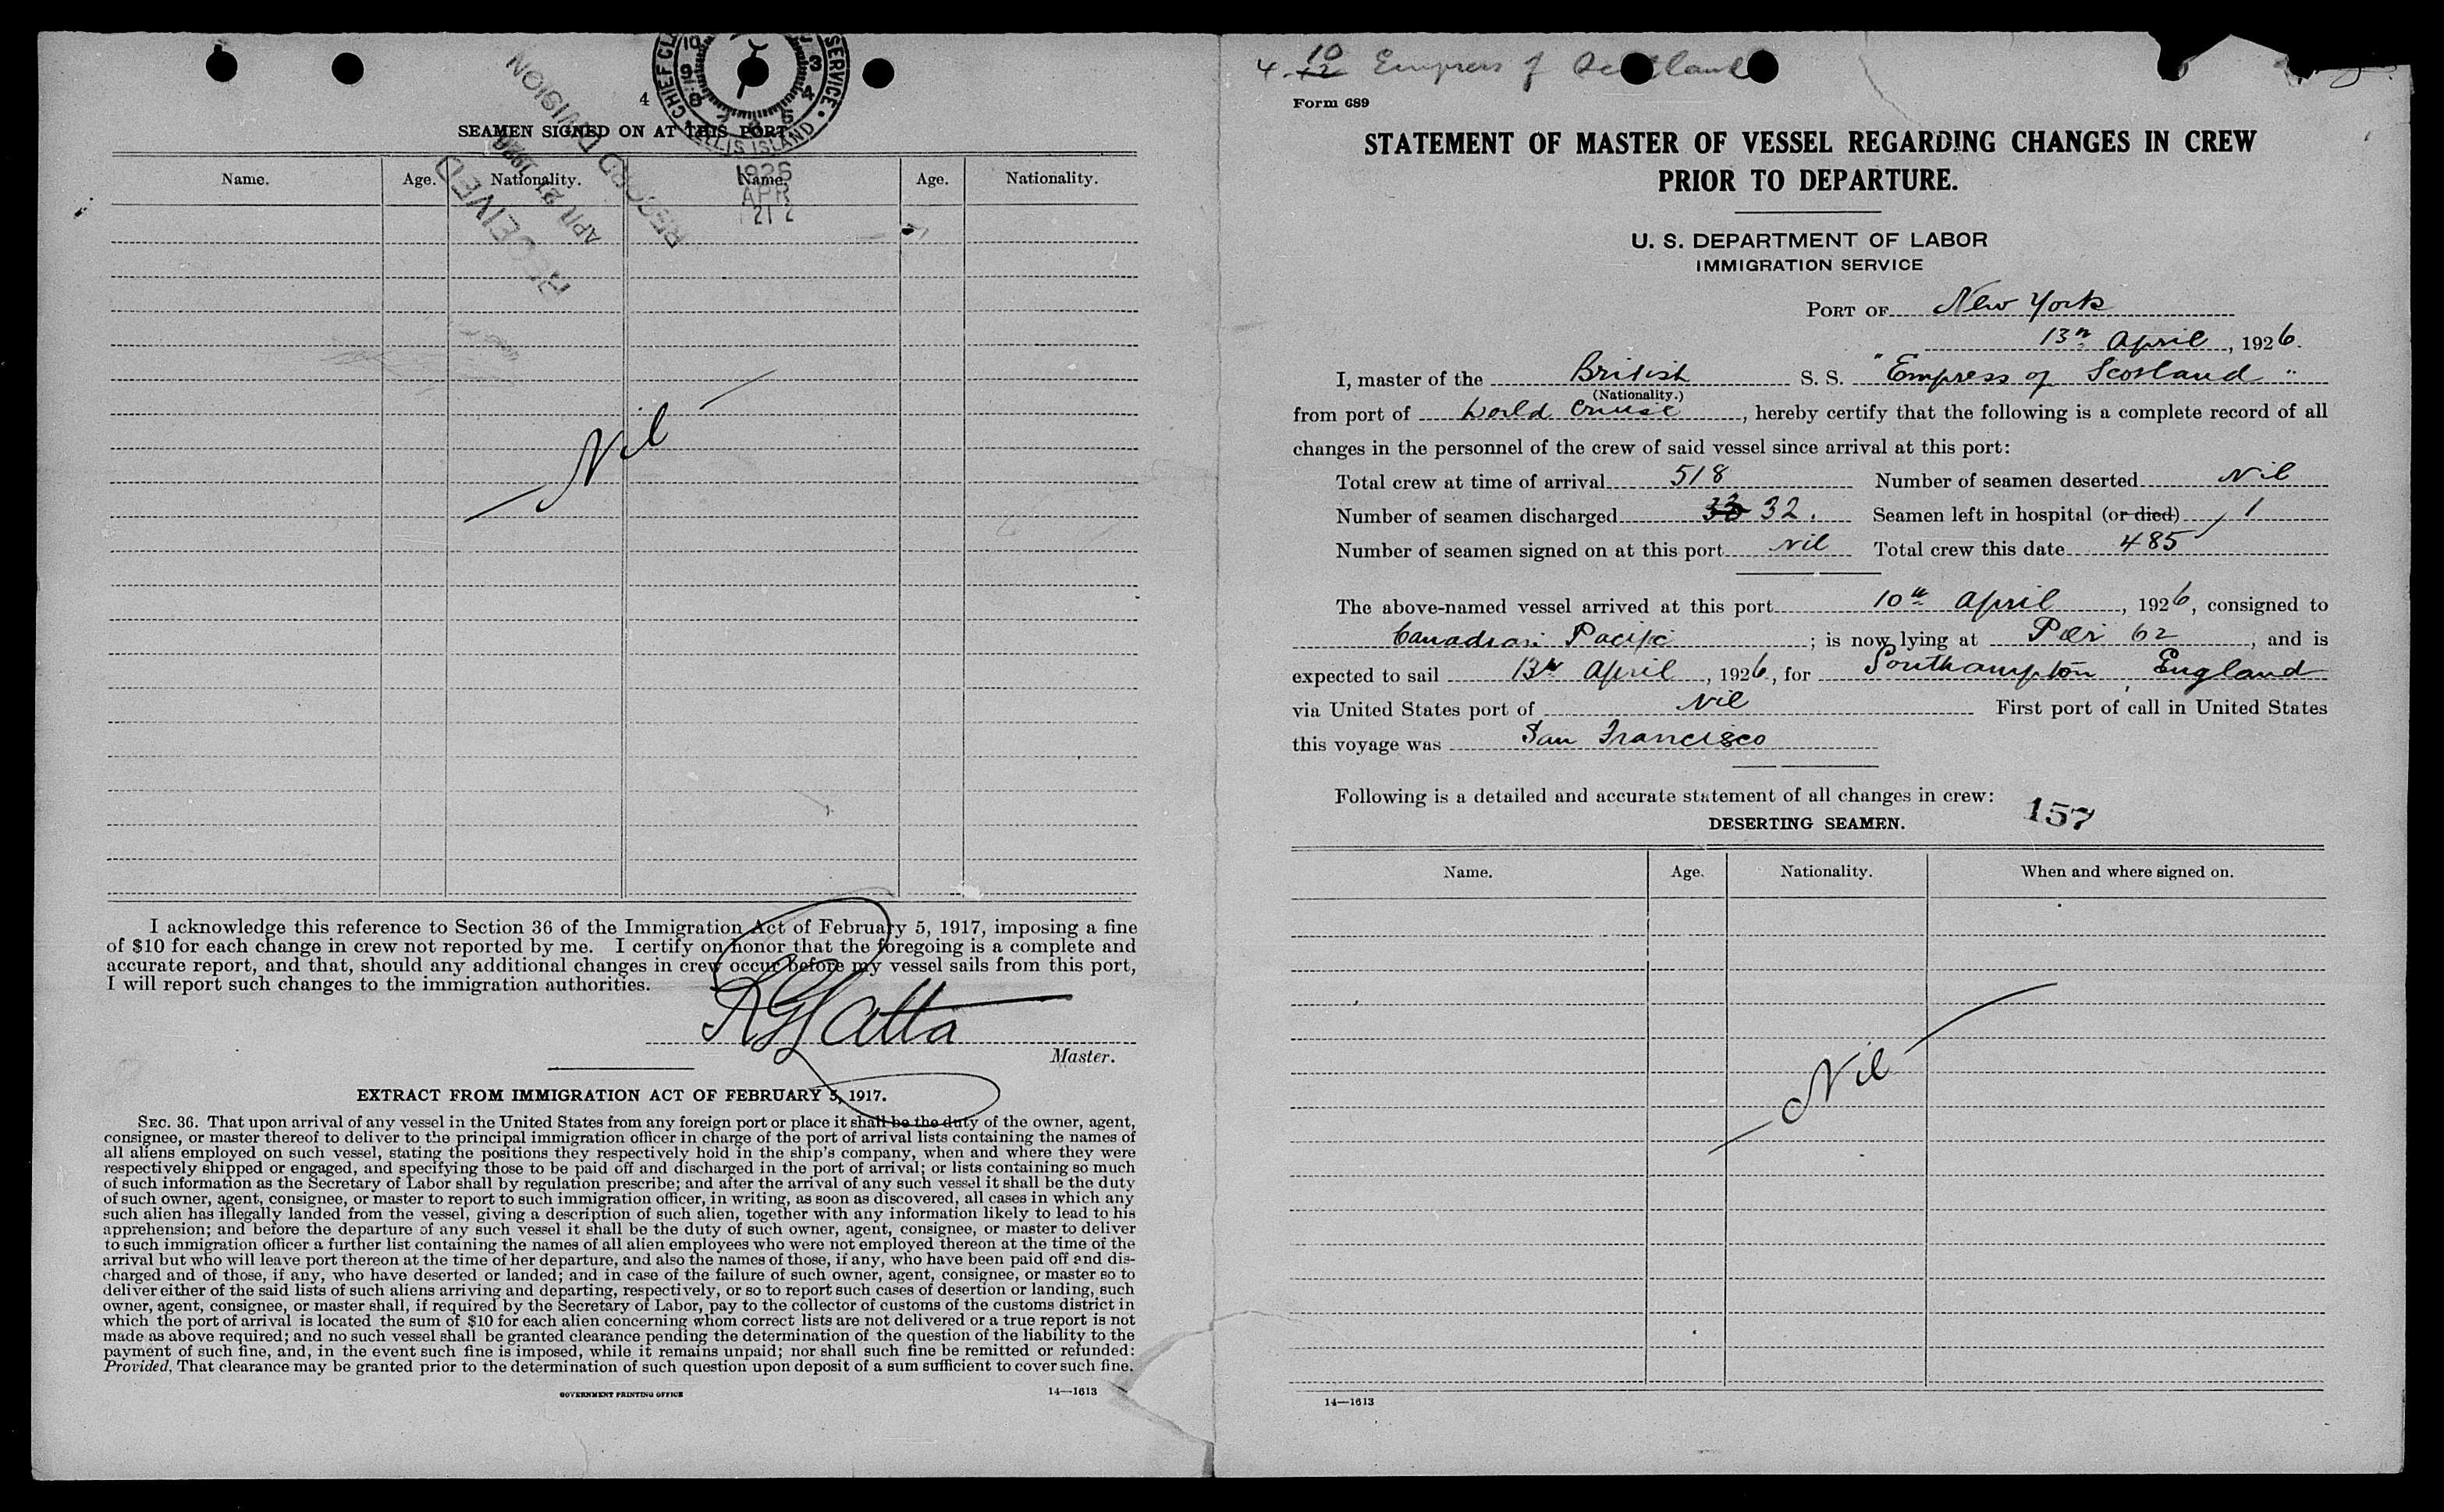 4
SEAMEN SIGNED ON AT THIS PORT.
CHIEF CL SERVICE • ELLIS ISLAND •
10 9 8 7 5 4 3
1926
APR
21 2
RECEIVED
APR 21 1926
RECORD DIVISION
Name. Age. Nationality. Name. Age. Nationality.
Nil
I acknowledge this reference to Section 36 of the Immigration Act of February 5, 1917, imposing a fine
of $10 for each change in crew not reported by me. I certify on honor that the foregoing is a complete and
accurate report, and that, should any additional changes in crew occur before my vessel sails from this port,
I will report such changes to the immigration authorities.
Master.
EXTRACT FROM IMMIGRATION ACT OF FEBRUARY 5, 1917.
SEC. 36. That upon arrival of any vessel in the United States from any foreign port or place it shall be the duty of the owner, agent,
consignee, or master thereof to deliver to the principal immigration officer in charge of the port of arrival lists containing the names of
all aliens employed on such vessel, stating the positions they respectively hold in the ship's company, when and where they were
respectively shipped or engaged, and specifying those to be paid off and discharged in the port of arrival; or lists containing so much
of such information as the Secretary of Labor shall by regulation prescribe; and after the arrival of any such vessel it shall be the duty
of such owner, agent, consignee, or master to report to such immigration officer, in writing, as soon as discovered, all cases in which any
such alien has illegally landed from the vessel, giving a description of such alien, together with any information likely to lead to his
apprehension; and before the departure of any such vessel it shall be the duty of such owner, agent, consignee, or master to deliver
to such immigration officer a further list containing the names of all alien employees who were not employed thereon at the time of the
arrival but who will leave port thereon at the time of her departure, and also the names of those, if any, who have been paid off and dis-
charged and of those, if any, who have deserted or landed; and in case of the failure of such owner, agent, consignee, or master so to
deliver either of the said lists of such aliens arriving and departing, respectively, or so to report such cases of desertion or landing, such
owner, agent, consignee, or master shall, if required by the Secretary of Labor, pay to the collector of customs of the customs district in
which the port of arrival is located the sum of $10 for each alien concerning whom correct lists are not delivered or a true report is not
made as above required; and no such vessel shall be granted clearance pending the determination of the question of the liability to the
payment of such fine, and, in the event such fine is imposed, while it remains unpaid; nor shall such fine be remitted or refunded:
Provided, That clearance may be granted prior to the determination of such question upon deposit of a sum sufficient to cover such fine.
GOVERNMENT PRINTING OFFICE 14—1613
4 10 12 Empress of Scotland
Form 689
STATEMENT OF MASTER OF VESSEL REGARDING CHANGES IN CREW
PRIOR TO DEPARTURE.
U. S. DEPARTMENT OF LABOR
IMMIGRATION SERVICE
PORT OF New York
13th April, 1926.
I, master of the British S. S. "Empress of Scotland"
(Nationality.)
from port of World Cruise, hereby certify that the following is a complete record of all
changes in the personnel of the crew of said vessel since arrival at this port:
Total crew at time of arrival 518 Number of seamen deserted Nil
Number of seamen discharged 33 32. Seamen left in hospital (or died) 1
Number of seamen signed on at this port Nil Total crew this date 485
The above-named vessel arrived at this port 10th April, 1926, consigned to
Canadian Pacific; is now lying at Pier 62, and is
expected to sail 13th April, 1926, for Southampton, England
via United States port of Nil First port of call in United States
this voyage was San Francisco
Following is a detailed and accurate statement of all changes in crew:
157
DESERTING SEAMEN.
Name. Age. Nationality. When and where signed on.
Nil
14—1613